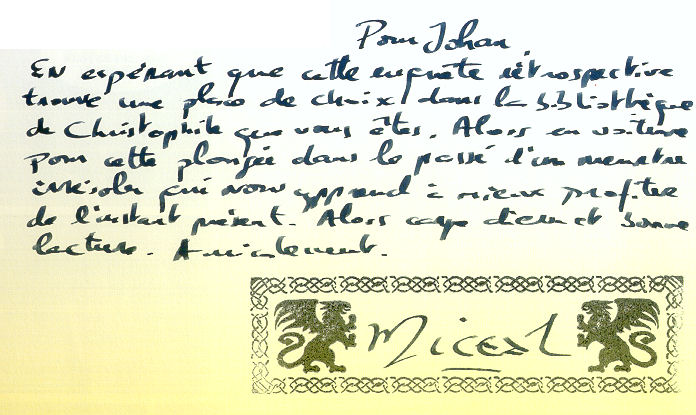 Pour Johan,
En espérant que cette enquête rétrospective
trouve une place de choix dans la bibliothèque
de Christophile que vous êtes. Alors en voiture
pour cette plongée dans le passé d'un meurtre
irrésolu qui nous apprend à mieux profiter
de l'instant présent. Alors carpe diem et bonne
lecture. Amicalement.